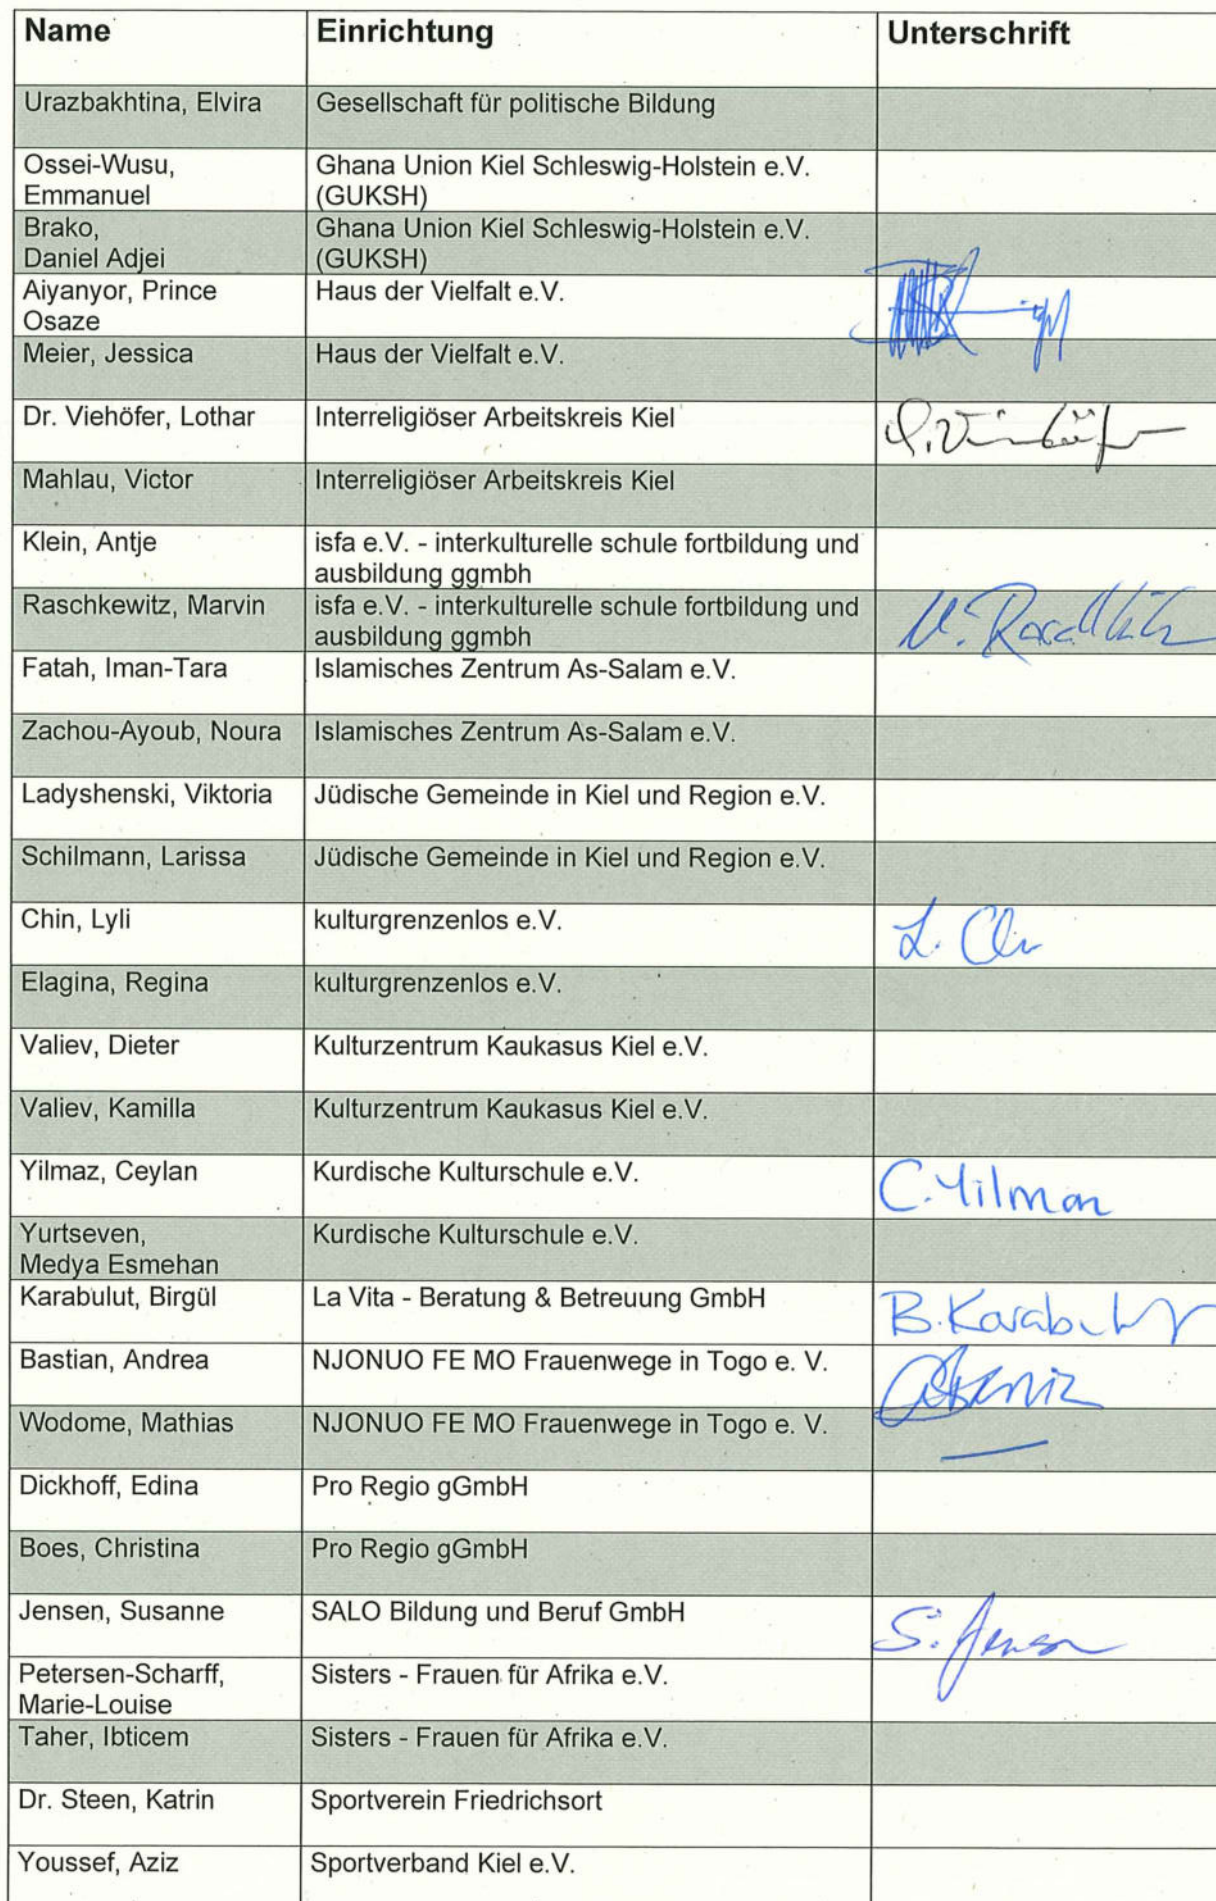 Name Einrichtung Unterschrift
Urazbakhtina, Elvira Gesellschaft für politische Bildung
Ossei-Wusu, Ghana Union Kiel Schleswig-Holstein e.V.
Emmanuel (GUKSH)
Brako, Ghana Union Kiel Schleswig-Holstein e.V.
Daniel Adjei (GUKSH)
Aiyanyor, Prince Haus der Vielfalt e.V.
Osaze
Meier, Jessica Haus der Vielfalt e.V.
Dr. Viehöfer, Lothar Interreligiöser Arbeitskreis Kiel
Mahlau, Victor Interreligiöser Arbeitskreis Kiel
Klein, Antje isfa e.V. - interkulturelle schule fortbildung und
ausbildung ggmbh
Raschkewitz, Marvin isfa e.V. - interkulturelle schule fortbildung und
ausbildung ggmbh
Fatah, Iman-Tara Islamisches Zentrum As-Salam e.V.
Zachou-Ayoub, Noura Islamisches Zentrum As-Salam e.V.
Ladyshenski, Viktoria Jüdische Gemeinde in Kiel und Region e.V.
Schilmann, Larissa Jüdische Gemeinde in Kiel und Region e.V.
Chin, Lyli kulturgrenzenlos e.V. L. Chin
Elagina, Regina kulturgrenzenlos e.V.
Valiev, Dieter Kulturzentrum Kaukasus Kiel e.V.
Valiev, Kamilla Kulturzentrum Kaukasus Kiel e.V.
Yilmaz, Ceylan Kurdische Kulturschule e.V. C. Yilmaz
Yurtseven, Kurdische Kulturschule e.V.
Medya Esmehan
Karabulut, Birgül La Vita - Beratung & Betreuung GmbH B. Karabulut
Bastian, Andrea NJONUO FE MO Frauenwege in Togo e. V.
Wodome, Mathias NJONUO FE MO Frauenwege in Togo e. V.
Dickhoff, Edina Pro Regio gGmbH
Boes, Christina Pro Regio gGmbH
Jensen, Susanne SALO Bildung und Beruf GmbH S. Jensen
Petersen-Scharff, Sisters - Frauen für Afrika e.V.
Marie-Louise
Taher, Ibticem Sisters - Frauen für Afrika e.V.
Dr. Steen, Katrin Sportverein Friedrichsort
Youssef, Aziz Sportverband Kiel e.V.